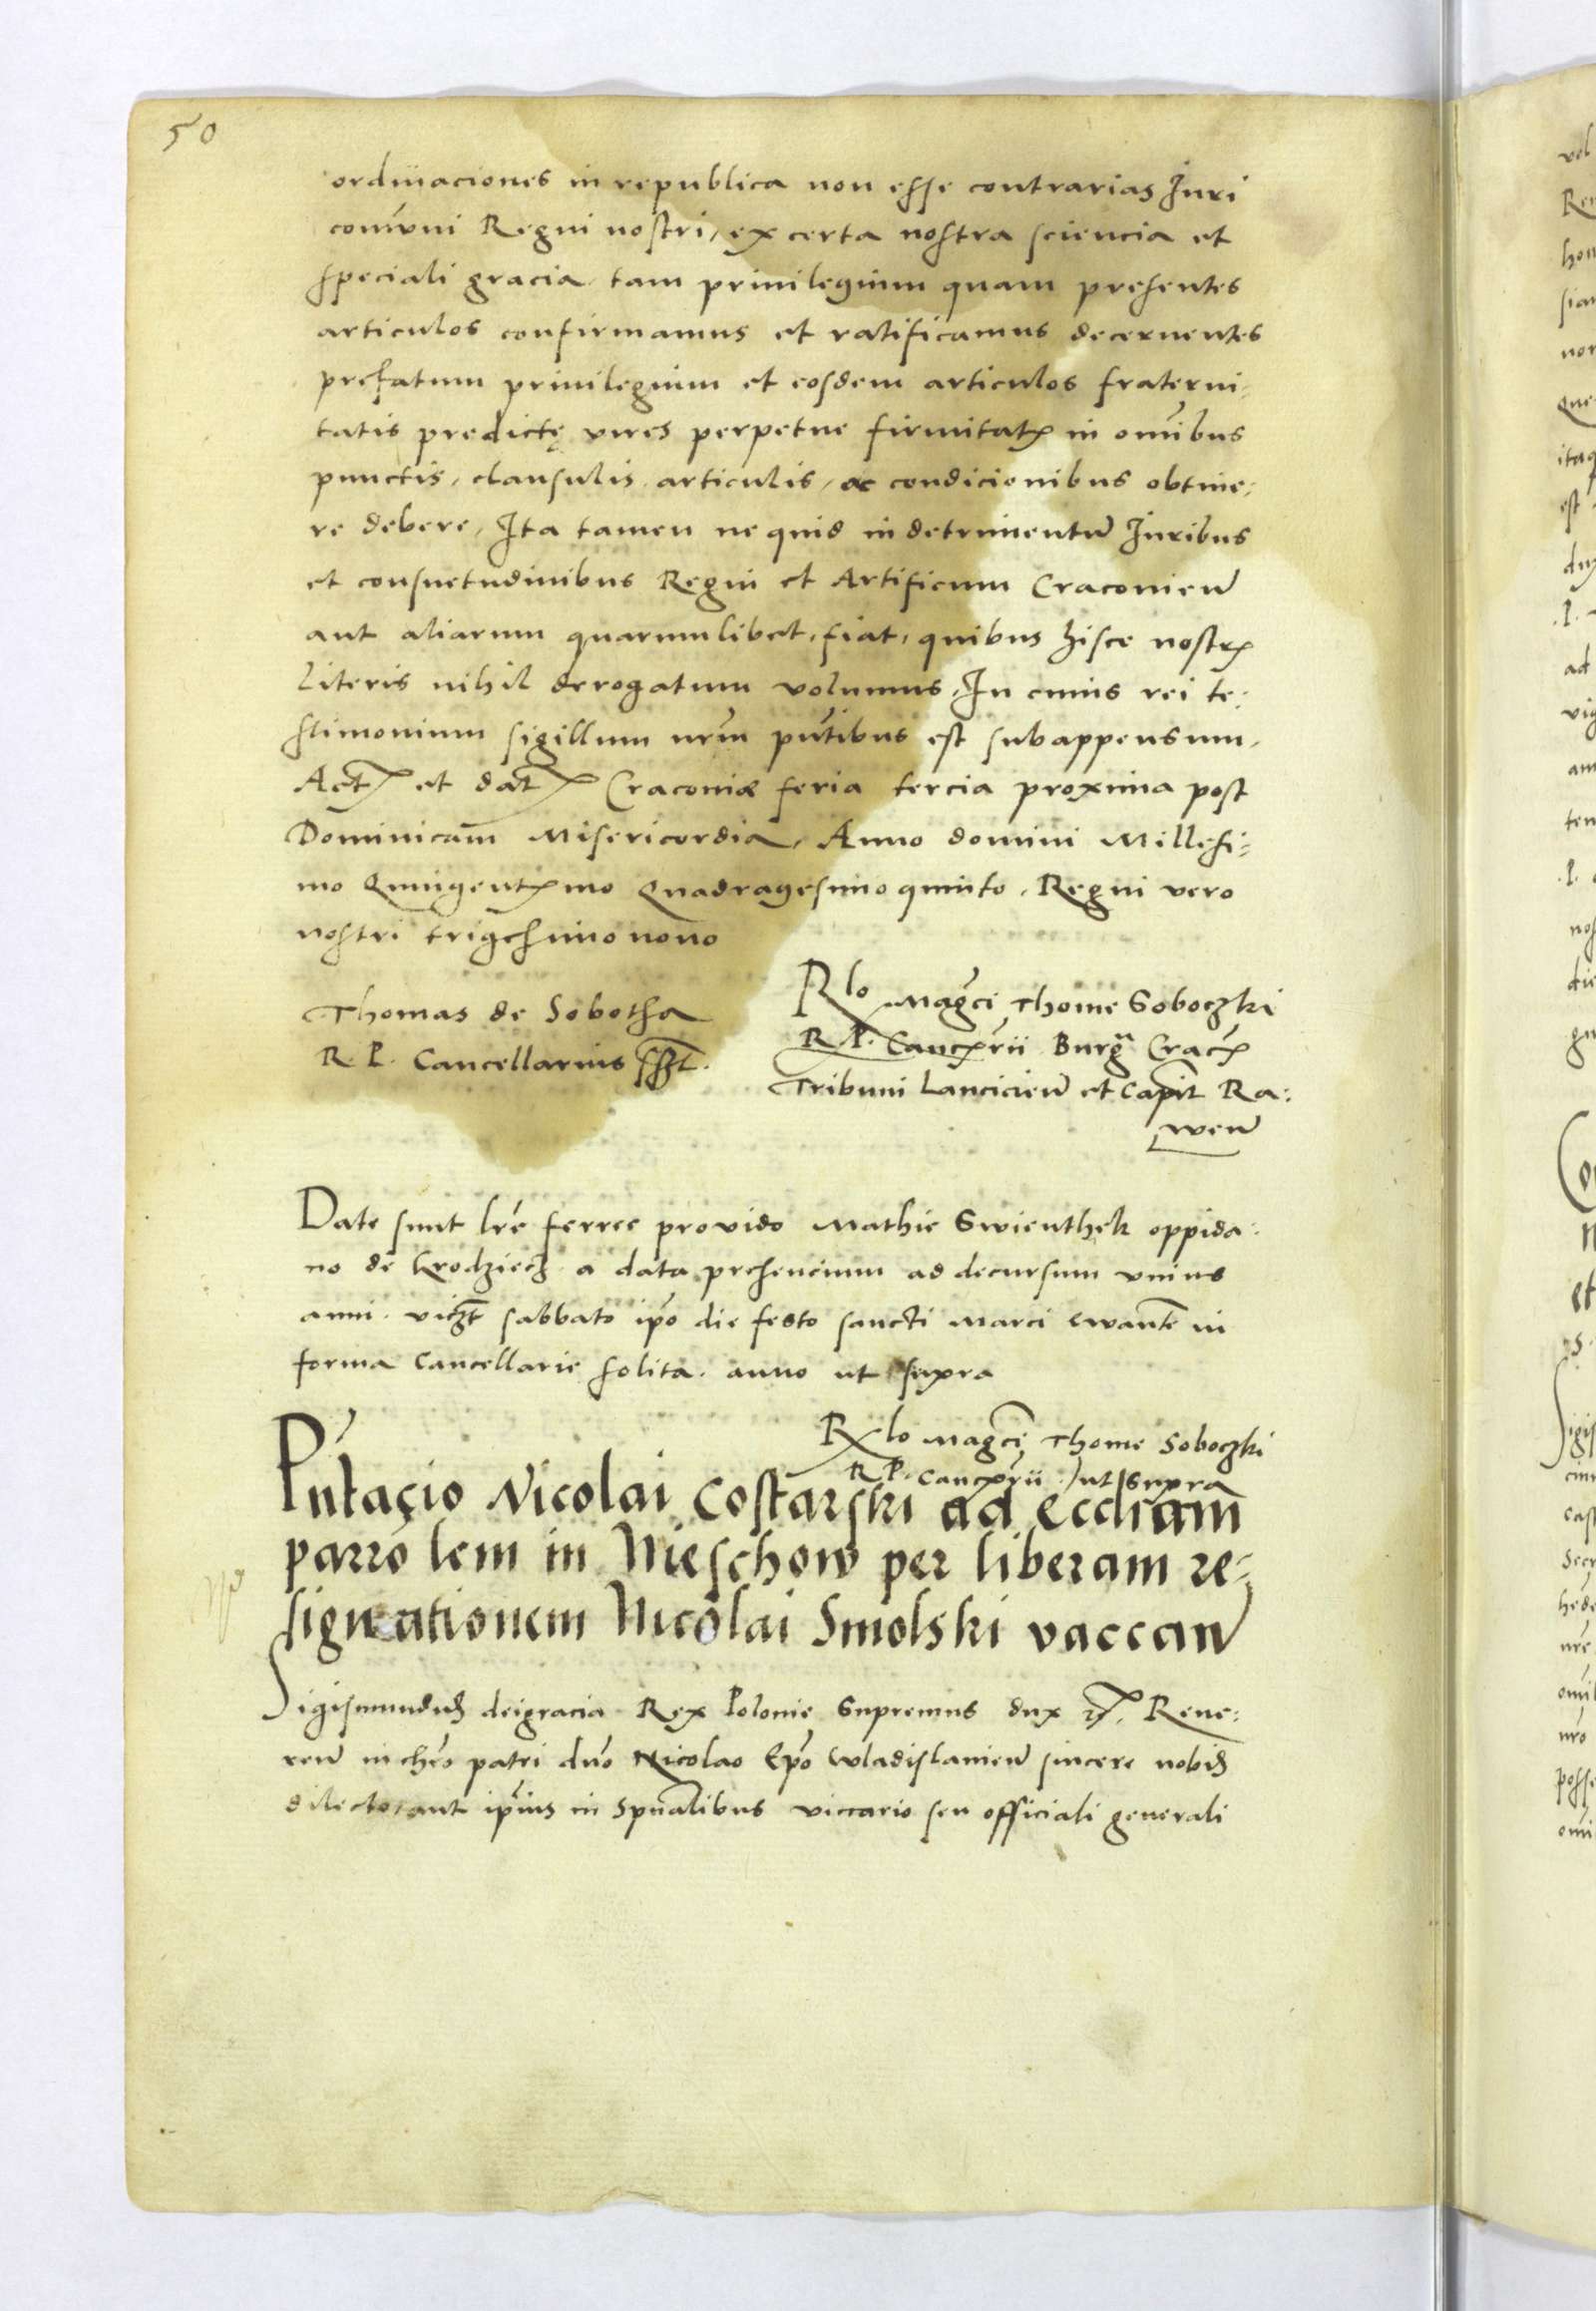 50
ordinaciones in republica non esse contrarias Juri
com̄uni Regni nostri, ex certa nostra sciencia et
speciali gracia tam privilegium quam presentes
articulos confirmamus et ratificamus decernentes
prefatum privilegium et eosdem articulos fraterni-
tatis predictę vires perpetue firmitatꝭ in om̄ibus
punctis, clausulis articulis, ac condicionibus obtine-
re debere, Ita tamen ne quid in detrimentū Juribus
et consuetudinibus Regni et Artificum Craconien̄
aut aliarum quarumlibet, fiat, quibus hisce nostrꝭ
Literis nihil derogatum volumus, In cuius rei te-
stimonium sigillum nr̄m pn̄tibus est subappensum.
Actꝭ et datꝭ Craconiæ feria tercia proxima post
Dominicam Misericordia, Anno domini Millesi-
mo Quingentꝭmo Quadragesimo quinto, Regni vero
nostri trigesimo nono
Thomas de Sobotha
R. P. Cancellarius sszt.
Rlo Mag̃ci Thome Soboczki
R. P. Cancꝭrii Burg̃ Cracꝭ
Tribuni Lancicien̄ et Capit Ra-
wen̄
Date sunt lr̃e ferree provido Mathie Swienthek oppida-
no de Grodziecz a data presencium ad decursum vnius
anni vicz̄t sabbato ip̄o die festo sancti Marci ewan̄te in
forma Cancellarie solita. anno ut supra
Rꝭlo Mag̃ci Thome Soboczki
R. P. Cancꝭrii ut supra
Pn̄tacio Nicolai Costarski ad eccl̄iam
parro lem in Nieschow per liberam re-
signationem Nicolai Smolski vaccan̄
Sigismundus dei gracia Rex Polonie Supremus dux ꝛc. Reve-
ren̄ in chr̄o patri dn̄o Nicolao Ep̄o Wladislavien̄ sincere nobis
dilecto, aut ip̄ius in sp̄ualibus viccario seu officiali generali